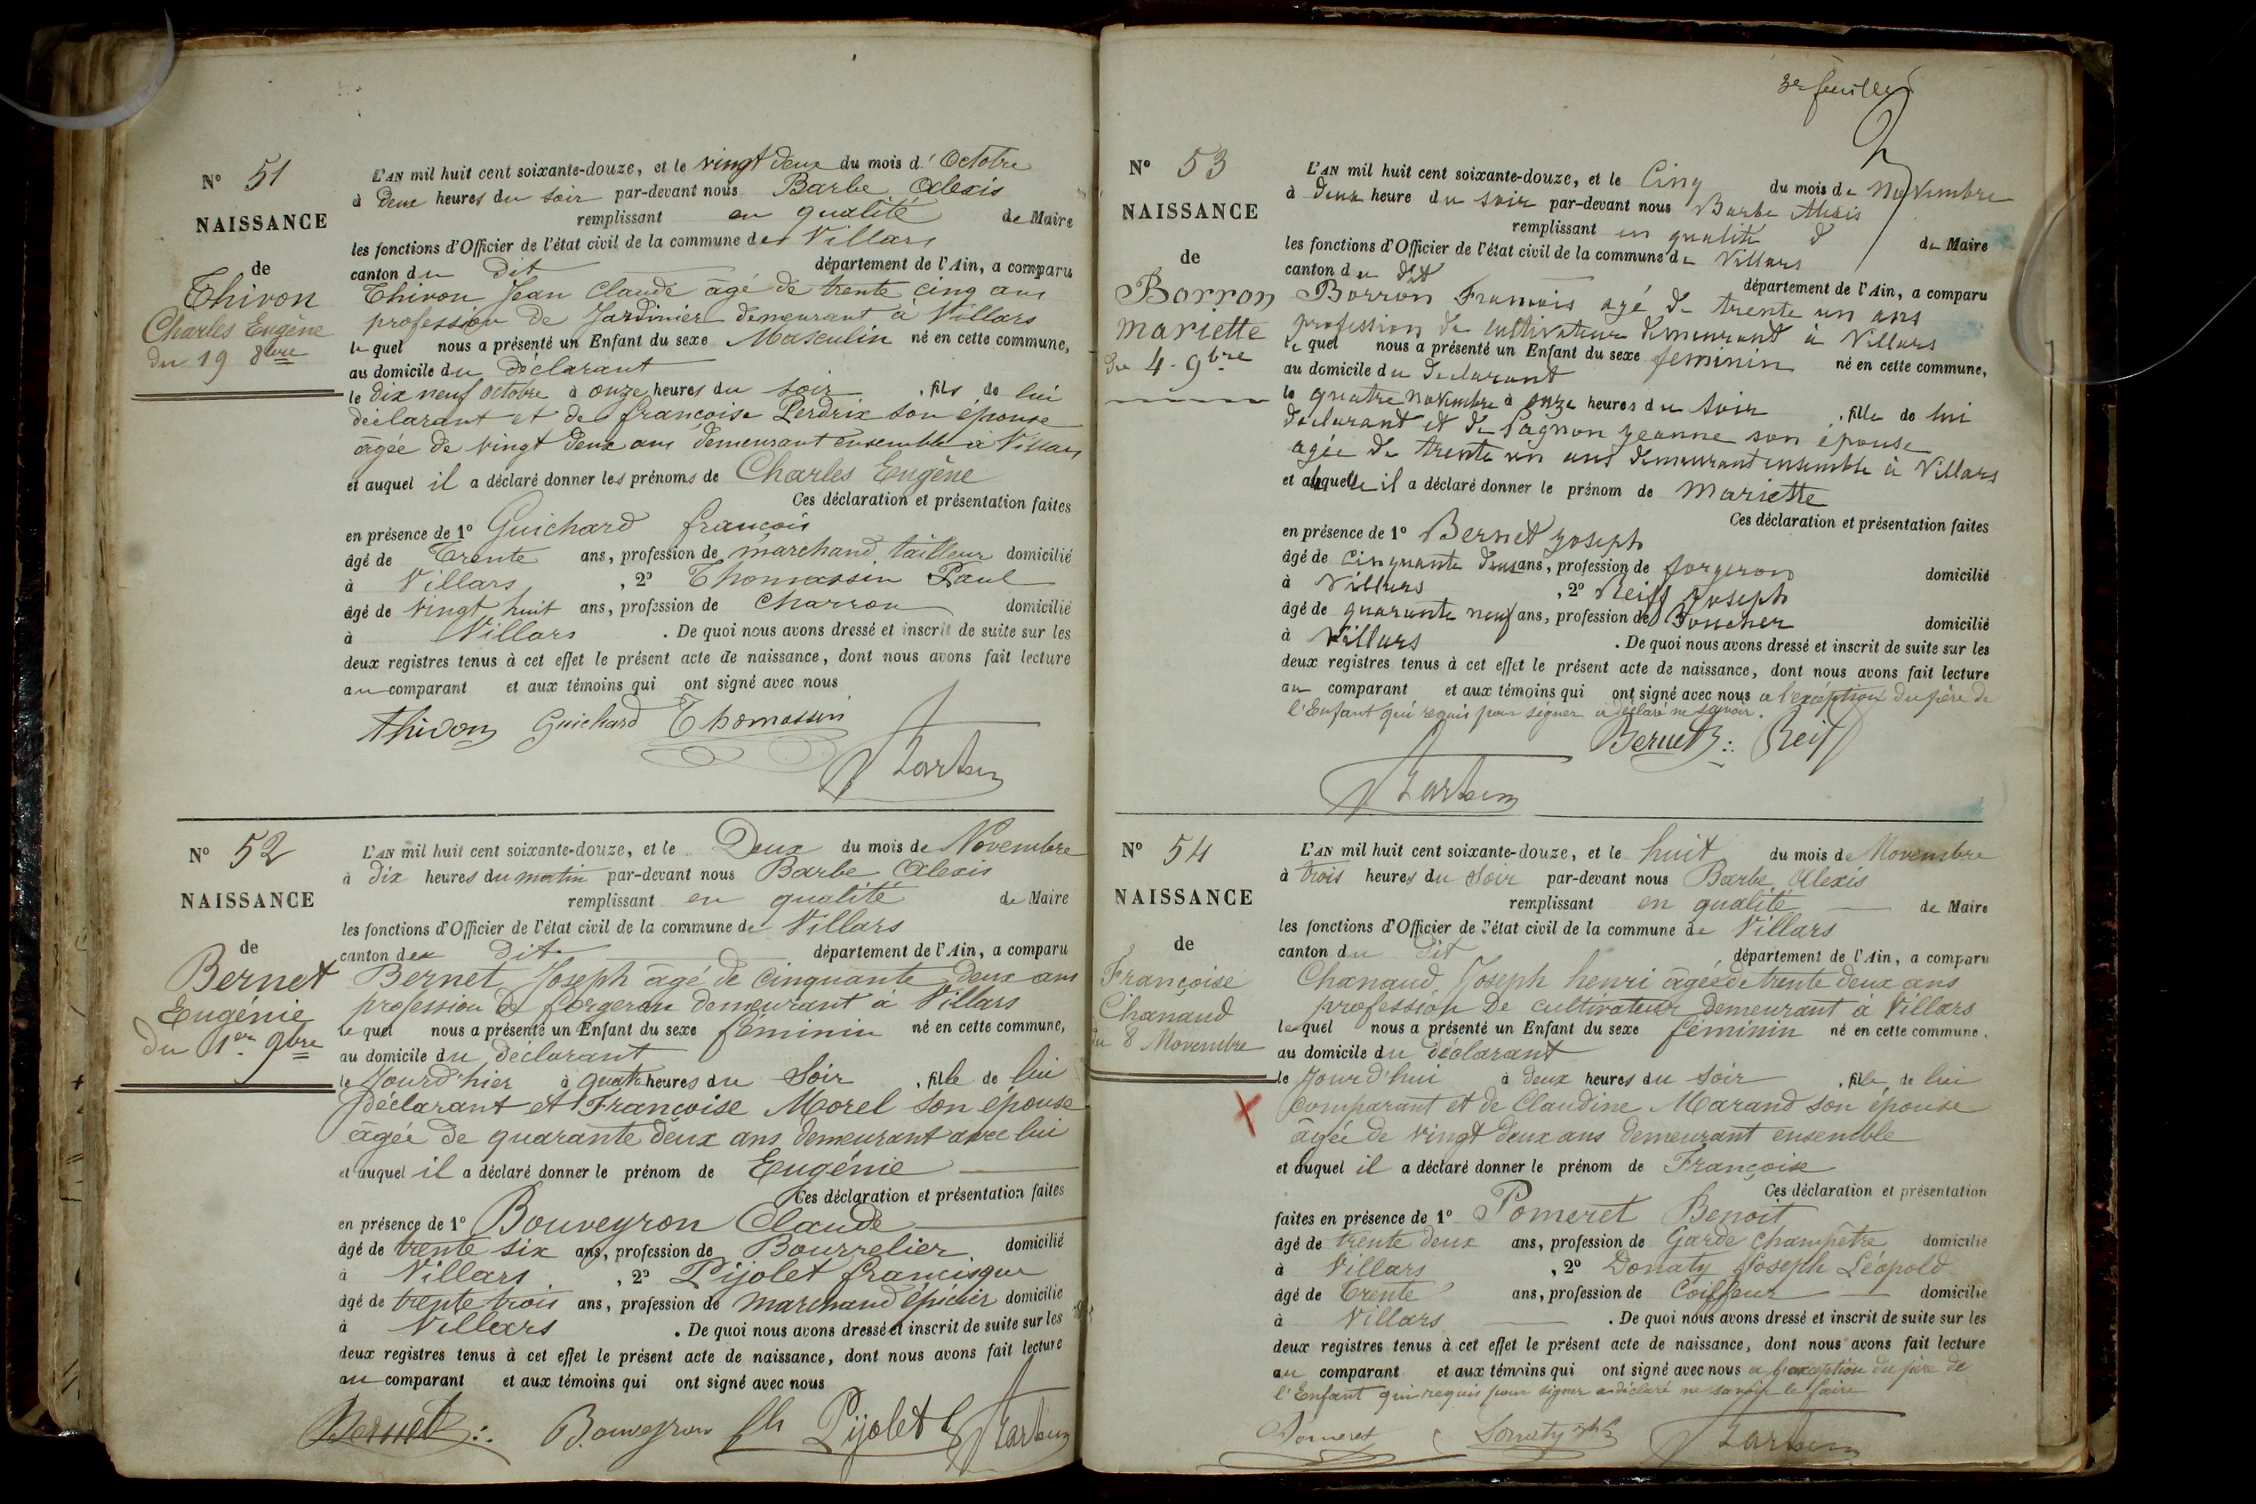 N° 51
NAISSANCE
de
Thivon
Charles Eugène
du 19 8bre
L'AN mil huit cent soixante-douze, et le vingt deux du mois d'Octobre
à Deux heures du soir par-devant nous Barbe Alexis
remplissant en qualité de Maire
les fonctions d'Officier de l'état civil de la commune de Villars
canton du Dit département de l'Ain, a comparu
Thivon Jean Claude âgé de trente cinq ans
profession de Jardinier demeurant à Villars
le quel nous a présenté un Enfant du sexe Masculin né en cette commune,
au domicile du Déclarant
le dix neuf octobre à onze heures du soir, fils de lui
déclarant et de françoise Perdrix son épouse
âgée de vingt deux ans demeurant ensemble à Villars
et auquel il a déclaré donner les prénoms de Charles Eugène
Ces déclaration et présentation faites
en présence de 1° Guichard françois
âgé de Trente ans, profession de marchand tailleur domicilié
à Villars, 2° Thomassin Paul
âgé de vingt huit ans, profession de Charron domicilié
à Villars. De quoi nous avons dressé et inscrit de suite sur les
deux registres tenus à cet effet le présent acte de naissance, dont nous avons fait lecture
au comparant et aux témoins qui ont signé avec nous
Thivon Guichard Thomassin
N° 52
NAISSANCE
de
Bernet
Eugénie
du 1er 9bre
L'AN mil huit cent soixante-douze, et le Deux du mois de Novembre
à dix heures du matin par-devant nous Barbe Alexis
remplissant en qualité de Maire
les fonctions d'Officier de l'état civil de la commune de Villars
canton du Dit département de l'Ain, a comparu
Bernet Joseph âgé de cinquante deux ans
profession de forgeron demeurant à Villars
le quel nous a présenté un Enfant du sexe féminin né en cette commune,
au domicile du Déclarant
le Jourd'hier à quatre heures du Soir, fille de lui
Déclarant et Françoise Morel son épouse
âgée de quarante deux ans demeurant avec lui
et auquel il a déclaré donner le prénom de Eugénie
Ces déclaration et présentation faites
en présence de 1° Bouveyron Claude
âgé de trente six ans, profession de Bourrelier domicilié
à Villars, 2° Pijolet francisque
âgé de trente trois ans, profession de marchand épicier domicilié
à Villars. De quoi nous avons dressé et inscrit de suite sur les
deux registres tenus à cet effet le présent acte de naissance, dont nous avons fait lecture
au comparant et aux témoins qui ont signé avec nous
Bernet Bouveyron Pijolet
3e feuillet
N° 53
NAISSANCE
de
Borron
Mariette
du 4 9bre
L'AN mil huit cent soixante-douze, et le Cinq du mois de Novembre
à deux heure du soir par-devant nous Barbe Alexis
remplissant en qualité de Maire
les fonctions d'Officier de l'état civil de la commune de Villars
canton du dit département de l'Ain, a comparu
Borron Francois agé de trente un ans
profession de cultivateur demeurant à Villars
le quel nous a présenté un Enfant du sexe feminin né en cette commune,
au domicile du declarant
le quatre Novembre à onze heures du soir, fille de lui
declarant et de Pagnon jeanne son épouse
agée de trente un ans demeurant ensemble à Villars
et alaquelle il a déclaré donner le prénom de Mariette
Ces déclaration et présentation faites
en présence de 1° Bernet Joseph
âgé de cinquante deux ans, profession de forgeron domicilié
à Villars, 2° Reiff Joseph
âgé de quarante neuf ans, profession de Boucher domicilié
à Villars. De quoi nous avons dressé et inscrit de suite sur les
deux registres tenus à cet effet le présent acte de naissance, dont nous avons fait lecture
au comparant et aux témoins qui ont signé avec nous a l'exception du père de
l'Enfant qui requis pour signer a déclaré ne savoir.
Bernet Reiff
N° 54
NAISSANCE
de
Françoise
Chanaud
du 8 Novembre
L'AN mil huit cent soixante-douze, et le huit du mois de Novembre
à trois heures du Soir par-devant nous Barbe Alexis
remplissant en qualité de Maire
les fonctions d'Officier de l'état civil de la commune de Villars
canton du Dit département de l'Ain, a comparu
Chanaud, Joseph henri âgé de trente deux ans
profession De cultivateur demeurant à Villars
lequel nous a présenté un Enfant du sexe féminin né en cette commune,
au domicile du déclarant
le Jourd'hui à deux heures du Soir, fille de lui
comparant et de Claudine Marand son épouse
âgée de vingt deux ans demeurant ensemble
et auquel il a déclaré donner le prénom de Françoise
Ces déclaration et présentation
faites en présence de 1° Pomeret Benoit
âgé de trente deux ans, profession de Garde Champêtre domicilié
à Villars, 2° Donaty Joseph Léopold
âgé de Trente ans, profession de Coiffeur domicilié
à Villars. De quoi nous avons dressé et inscrit de suite sur les
deux registres tenus à cet effet le présent acte de naissance, dont nous avons fait lecture
au comparant et aux témoins qui ont signé avec nous a l'exception du père de
l'Enfant qui requis pour signer a déclaré ne savoir le faire
Pomeret Donaty